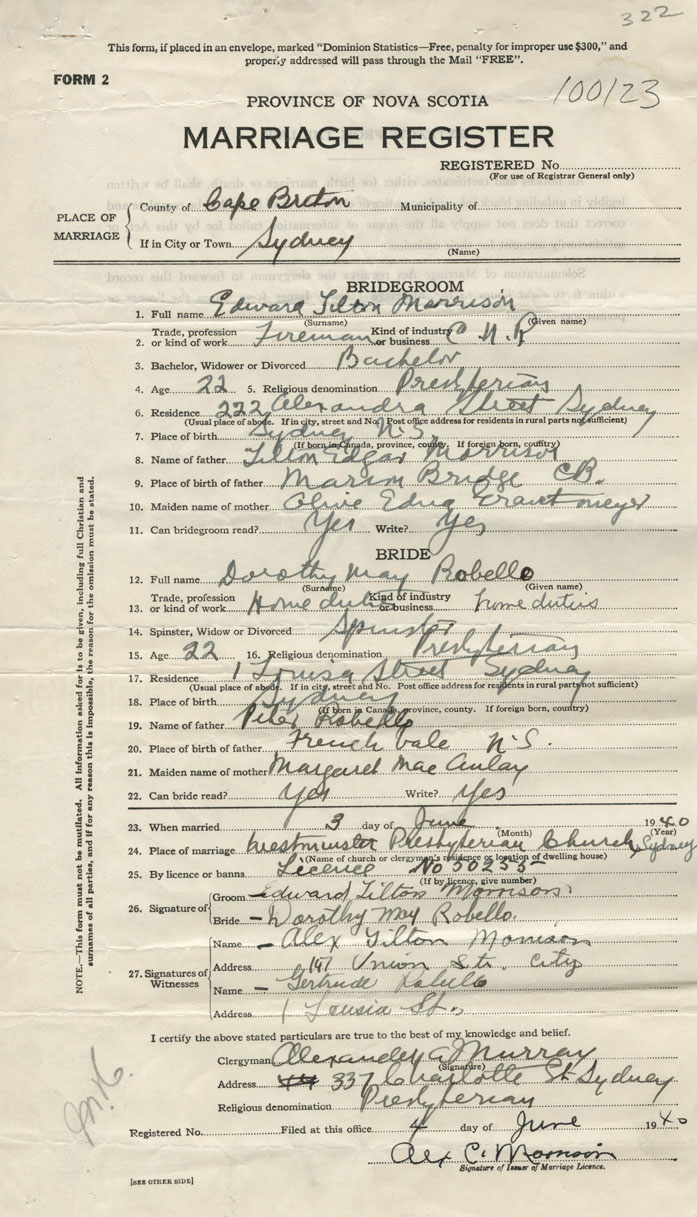 322
This form, if placed in an envelope, marked "Dominion Statistics—Free, penalty for improper use $300," and
properly addressed will pass through the Mail "FREE".
FORM 2
100123
PROVINCE OF NOVA SCOTIA
MARRIAGE REGISTER
REGISTERED No.
(For use of Registrar General only)
PLACE OF MARRIAGE
County of Cape Breton Municipality of
If in City or Town Sydney
(Name)
BRIDEGROOM
1. Full name Edward Tilton Morrison
(Surname) (Given name)
2. Trade, profession or kind of work Fireman Kind of industry or business C N R
3. Bachelor, Widower or Divorced Bachelor
4. Age 22 5. Religious denomination Presbyterian
6. Residence 222 Alexandra Street Sydney
(Usual place of abode. If in city, street and No. Post office address for residents in rural parts not sufficient)
7. Place of birth Sydney N.S.
(If born in Canada, province, county. If foreign born, country)
8. Name of father Tilton Edgar Morrison
9. Place of birth of father Marion Bridge CB.
10. Maiden name of mother Olive Edna
11. Can bridegroom read? Yes Write? Yes
BRIDE
12. Full name Dorothy May Robello
(Surname) (Given name)
13. Trade, profession or kind of work Home duties Kind of industry or business home duties
14. Spinster, Widow or Divorced Spinster
15. Age 22 16. Religious denomination Presbyterian
17. Residence 1 Louisa Street Sydney
(Usual place of abode. If in city, street and No. Post office address for residents in rural parts not sufficient)
18. Place of birth Sydney
(If born in Canada, province, county. If foreign born, country)
19. Name of father Peter Robello
20. Place of birth of father French Vale N.S.
21. Maiden name of mother Margaret Mac Aulay
22. Can bride read? Yes Write? Yes
23. When married 3 day of June 1940
(Month) (Year)
24. Place of marriage Westminster Presbyterian Church, Sydney
(Name of church or clergyman's residence or location of dwelling house)
25. By licence or banns Licence No 50255
(If by licence, give number)
26. Signature of
Groom Edward Tilton Morrison
Bride – Dorothy May Robello.
27. Signatures of Witnesses
Name – Alex Tilton Morrison
Address 141 Union St. City
Name – Gertrude Rabello
Address 1 Lousia St.
I certify the above stated particulars are true to the best of my knowledge and belief.
Clergyman Alexander A Murray
(Signature)
Address 337 Charlotte St Sydney
Religious denomination Presbyterian
Registered No. Filed at this office 4 day of June 1940
Alex C. Morrison
Signature of Issuer of Marriage Licence.
[SEE OTHER SIDE]
NOTE.—This form must not be mutilated. All information asked for is to be given, including full Christian and
surnames of all parties, and if for any reason this is impossible, the reason for the omission must be stated.